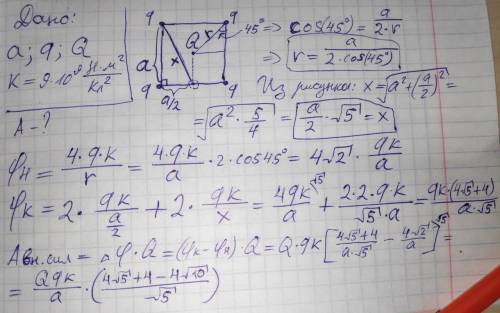 Дано:
a; q; Q
K = 9·10⁹ Н·м²/Кл²
A-?
q q
Q r 45°
a x
q a/2 q
=> cos(45°) = a/(2·r)
=> r = a/(2·cos(45°))
Из рисунка: x = √(a² + (a/2)²) =
= √(a²·5/4) = a/2·√5 = x
φн = 4·q·k/r = 4·q·k/a · 2·cos45° = 4√2 · qk/a
φк = 2· qk/(a/2) + 2· qk/x = 4qk/a ^√5 + 2·2·qk/(√5·a) = qk·(4√5+4)/(a·√5)
Aвн.сил = Δφ·Q = (φк-φн)·Q = Q·qk[(4√5+4)/(a·√5) - 4√2/a ^√5] =
= Qqk/a · ((4√5+4-4√10)/√5)